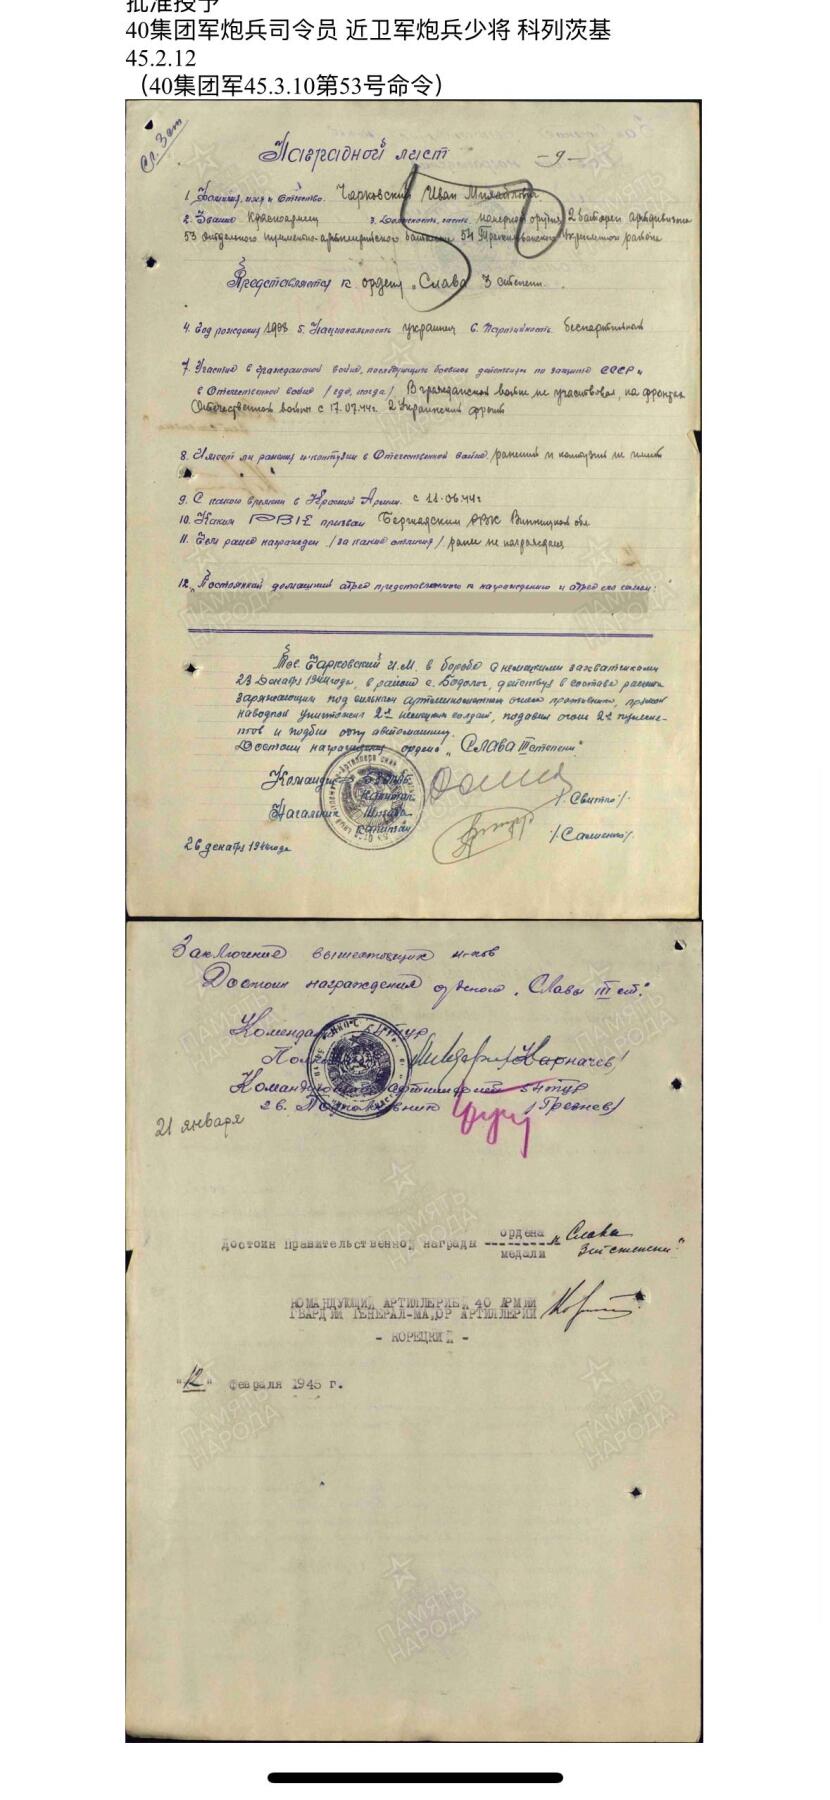 批准授予
40集团军炮兵司令员 近卫军炮兵少将 科列茨基
45.2.12
（40集团军45.3.10第53号命令）
Сл. 3 ст
Наградной лист -9-
50
1. Фамилия, имя и Отчество. Чарковский Иван Михайлович
2. Звание Красноармеец 3. Должность, часть. орудия 2 батареи артдивизиона
53 отдельного пулеметно-артиллерийского баталиона 54 укрепленного района
Представляется к ордену "Слава" 3 степени.
4. Год рождения 1908 5. Национальность украинец 6. Партийность беспартийный
7. Участие в гражданской войне, последующих боевых действиях по защите СССР и
в Отечественной войне /где, когда/ В гражданской войне не участвовал, на фронтах
Отечественной войны с 17.07.44г. 2 Украинский фронт
8. Имеет ли ранения и контузии в Отечественной войне ранений и контузий не имеет
9. С какого времени в Красной Армии. с 11.06.44г
10. Каким РВК призван Бершадским РВК Винницкой обл.
11. Чем ранее награжден /за какие отличия/ ранее не награжден
12. Постоянный домашний адрес представленного к награждению и адрес его семьи:
Тов. Чарковский И.М. в борьбе с немецкими захватчиками
23 Декабря 1944 года, в районе с. Бодолог, действуя в составе расчета
заряжающим под сильным артминометным огнем противника, прямой
наводкой уничтожил 2х немецких солдат, подавил огонь 2х пулеме-
тов и подбил одну автомашину.
Достоин награждения ордена "СЛАВА III степени"
Командир 53 ОПАБ
Капитан /Свитко/
Начальник Штаба
капитан /Самиенко/
26 декабря 1944 года
Заключение вышестоящих н-ков
Достоин награждения орденом "Славы III ст."
Комендант 54 ТУР
Полковник /Карначев/
Командующий артиллерией 54 ТУР
гв. Подполковник /Грезнев/
21 января
Достоин Правительственной награды ордена "Слава
медали 3ей степени"
КОМАНДУЮЩИЙ АРТИЛЛЕРИЕЙ 40 АРМИИ
ГВАРДИИ ГЕНЕРАЛ-МАЙОР АРТИЛЛЕРИИ
- КОРЕЦКИЙ -
"12" февраля 1945 г.
ПАМЯТЬ НАРОДА